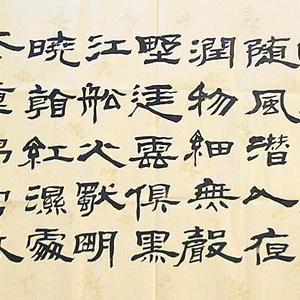 随風潜入夜
潤物細無聲
野逕雲俱黑
江舩火獨眀
曉看紅濕處